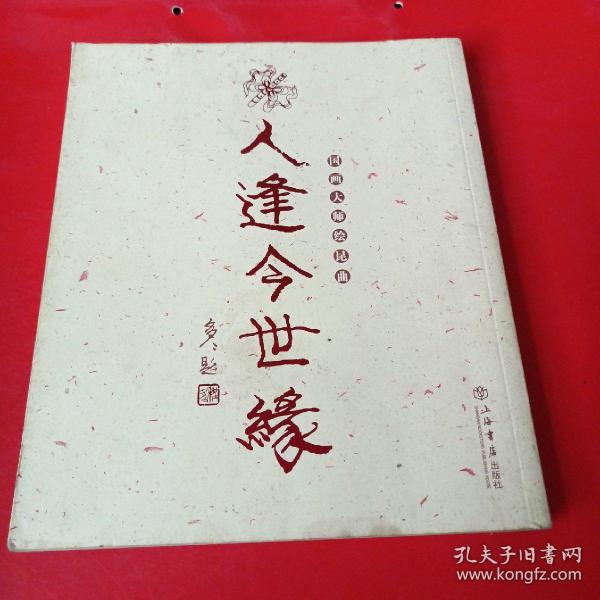 人逢今世缘
国画大师绘昆曲
多多题
上海书店出版社
孔夫子旧书网
www.kongfz.com